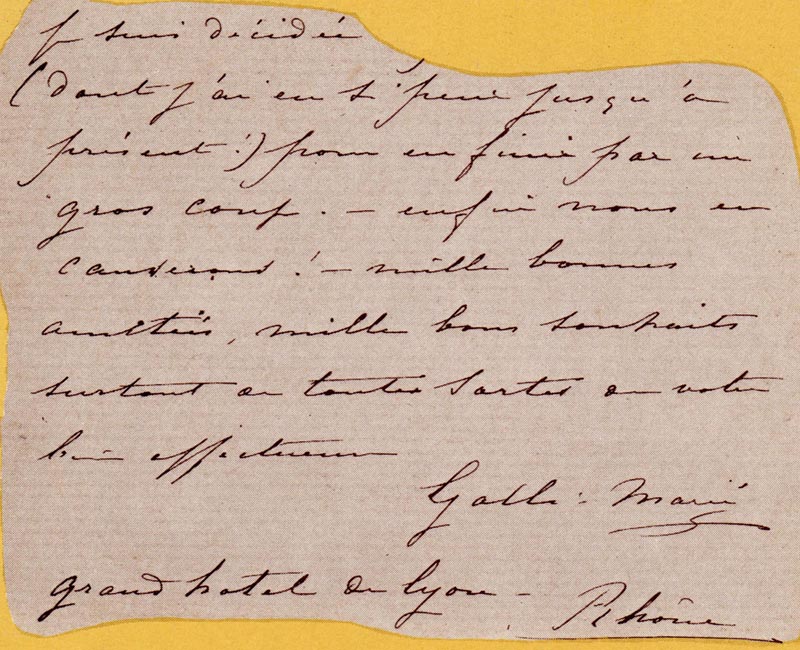 Je suis décidée
(dont j'ai eu si peur jusqu'à
présent!) pour en finir par un
gros coup. — enfin nous en
causerons! — mille bonnes
amitiés, mille bons souhaits
surtout de toutes sortes de votre
bien affectueuse
Galli-Marié
grand hotel de Lyon — Rhône